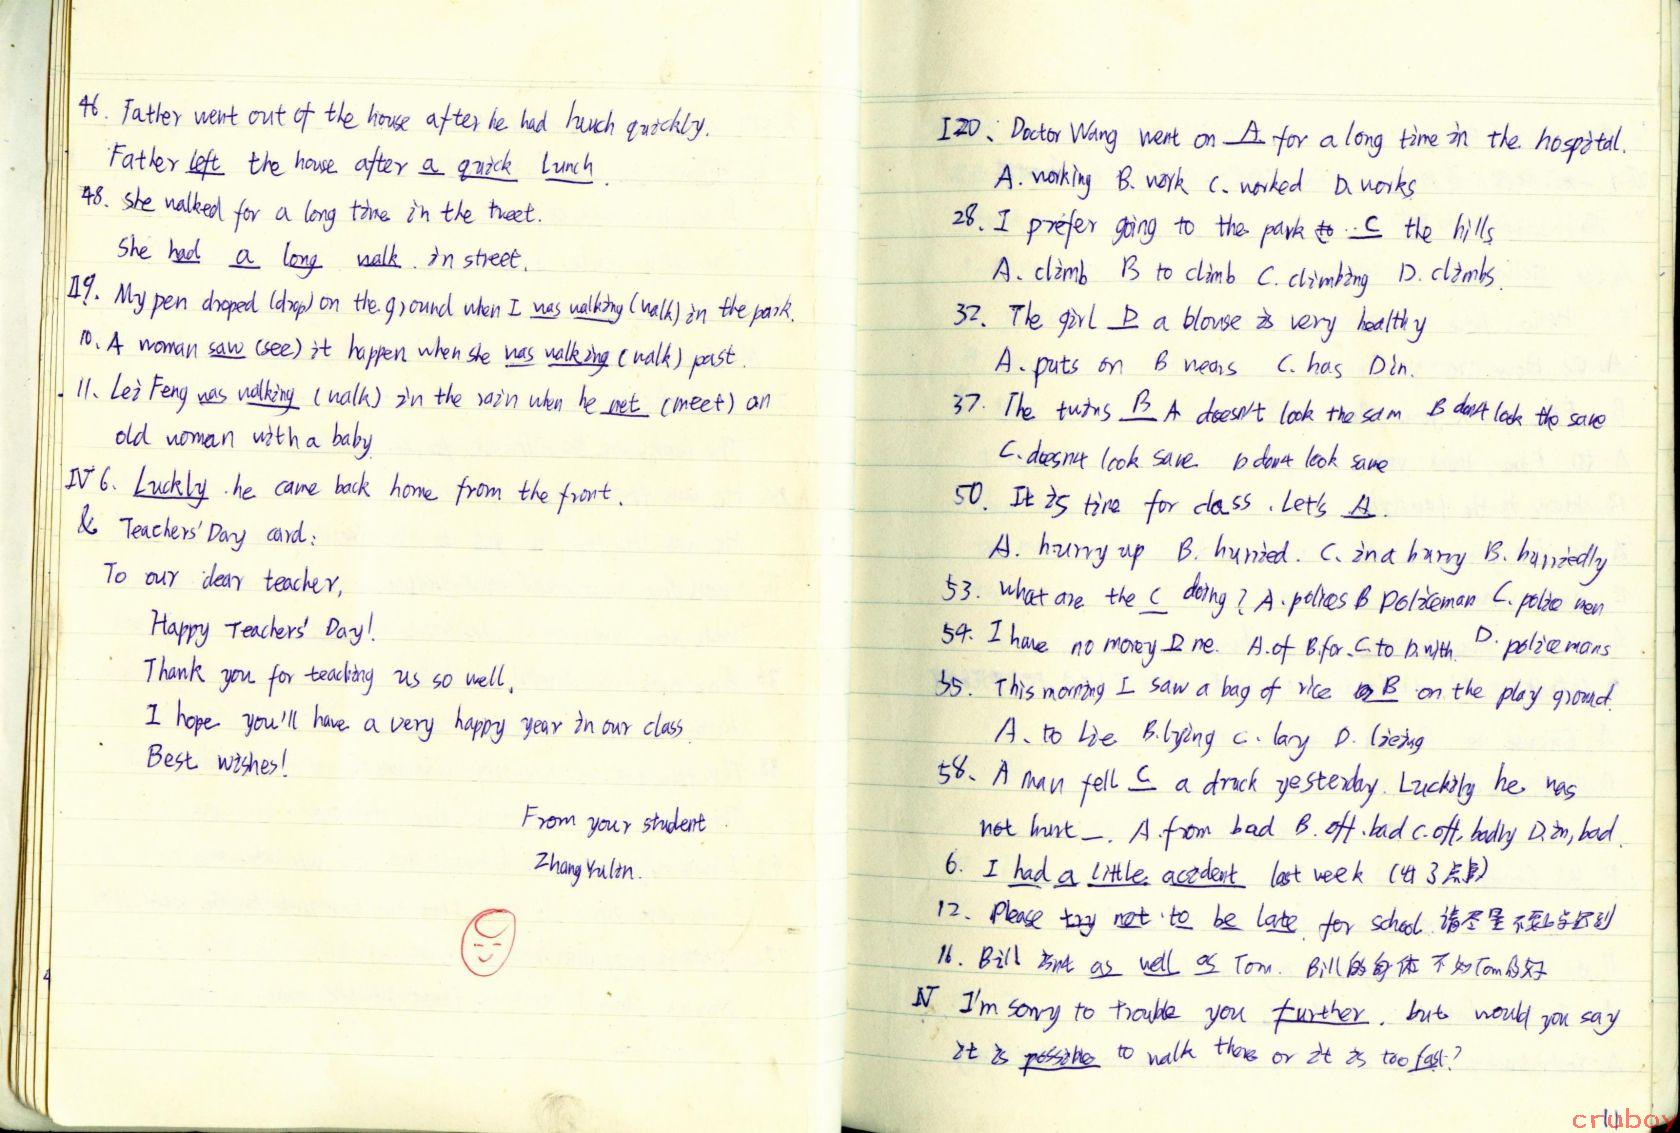 46. Father went out of the house after he had lunch quickly.
Father left the house after a quick lunch.
48. She walked for a long time in the treet.
She had a long walk. in street.
II9. My pen droped (drop) on the ground when I was walking (walk) in the park.
10. A woman saw (see) it happen when she was walking (walk) past.
11. Lei Feng was walking (walk) in the rain when he met (meet) an
old woman with a baby
IV 6. Luckly he came back home from the front.
& Teachers' Day card:
To our dear teacher,
Happy Teachers' Day!
Thank you for teaching us so well.
I hope you'll have a very happy year in our class
Best wishes!
From your student
Zhang Yulin.
4
I20. Doctor Wang went on A for a long time in the hospital.
A. working B. work C. worked D. works
28. I prefer going to the park to C the hills
A. climb B to climb C. climbing D. climbs.
32. The girl D a blouse is very healthy
A. puts on B wears C. has D in.
37. The twins B A doesn't look the sam B don't look the same
C. doesn't look same D don't look same
50. It is time for class. Let's A.
A. hurry up B. hurried. C. in a hurry B. hurriedly
53. What are the C doing? A. polices B policeman C. police men
54. I have no money D me. A. of B. for. C. to D. with. D. policemans
55. This morning I saw a bag of rice B on the play ground.
A. to lie B. lying C. lay D. lieing
58. A man fell C a truck yesterday. Luckily he was
not hurt _. A. from bad B. off. bad C. off, badly D. in, bad.
6. I had a little accident last week (出了点事)
12. Please try not to be late for school 请尽量不要上学迟到
16. Bill isn't as well as Tom. Bill的身体不如Tom的好
IV I'm sorry to trouble you further. but would you say
it is possible to walk there or it is too fast?
11
cruboy